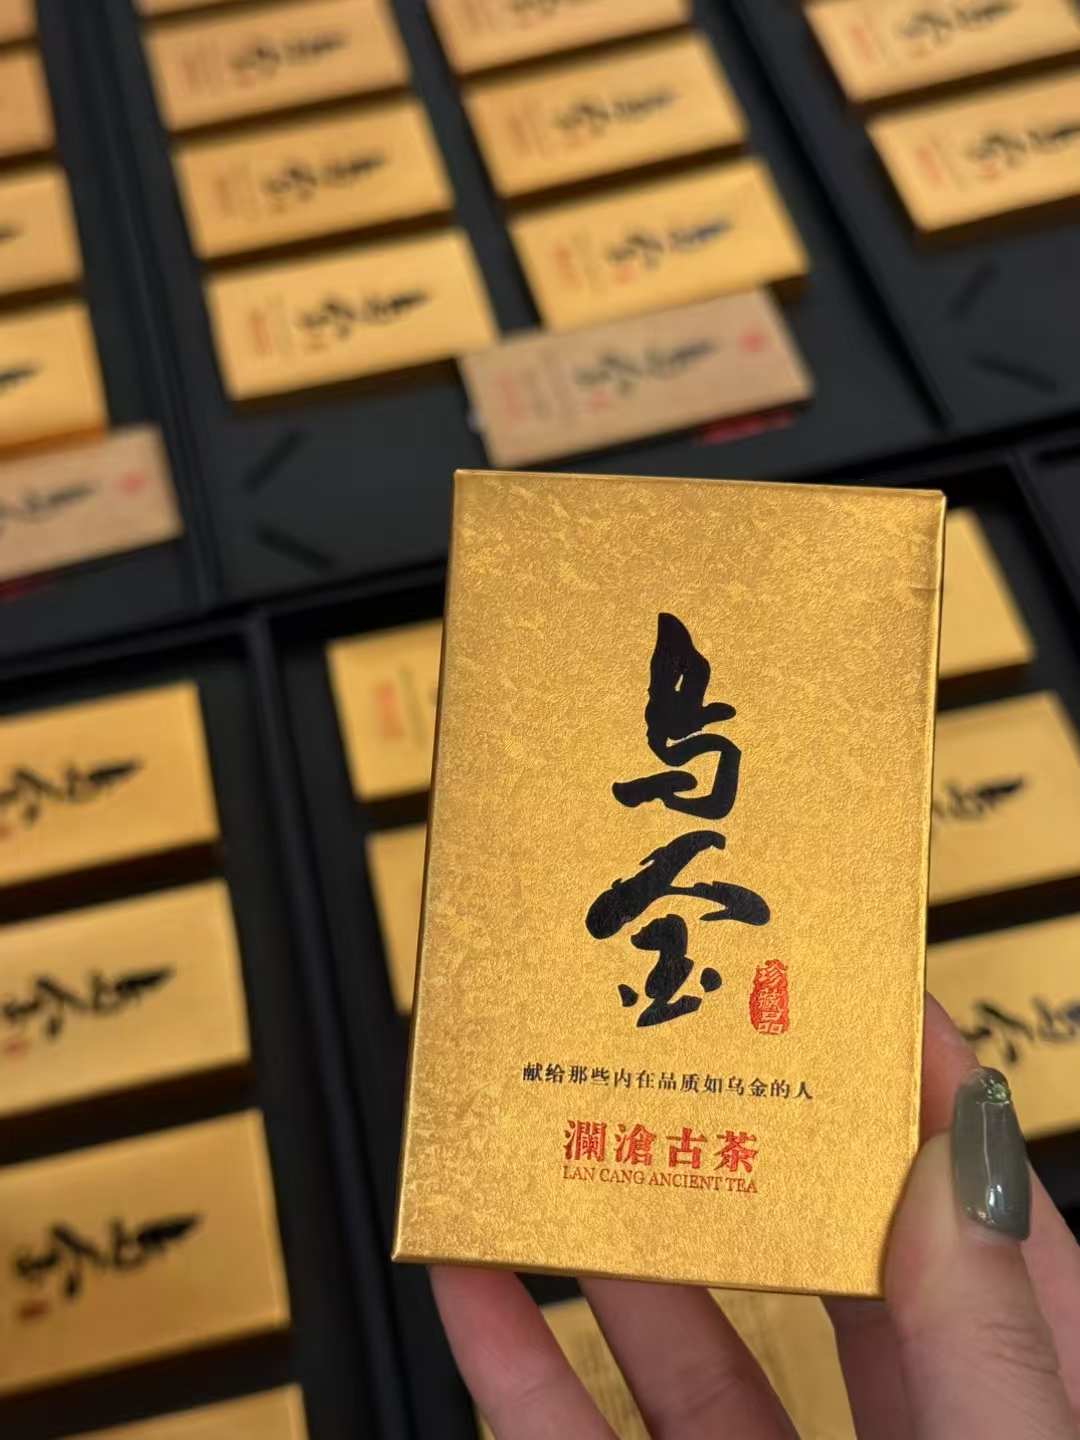 乌金
珍藏品
献给那些内在品质如乌金的人
瀾滄古茶
LAN CANG ANCIENT TEA